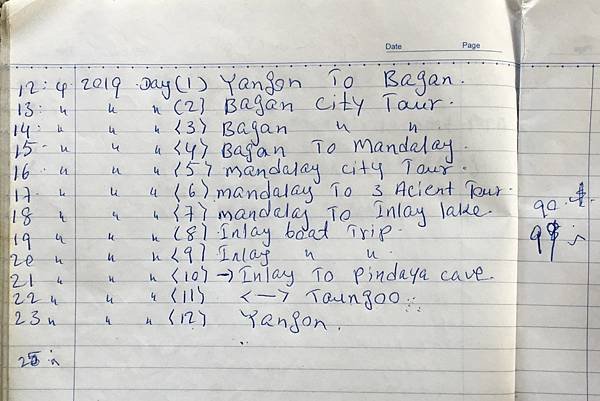 Date Page
12: 4 2019 Day (1) Yangon To Bagan.
13: " " " (2) Bagan city Tour.
14: " " " (3) Bagan " "
15 " " " (4) Bagan To Mandalay.
16 " " " (5) mandalay city Tour.
17 " " " (6) mandalay To 3 Acient Tour.
18 " " " (7) mandalay To Inlay lake. 90 $
19 " " " (8) Inlay boat Trip.
20 " " " (9) Inlay " "
21 " " " (10) → Inlay To Pindaya cave.
22 " " " (11) <—> Taungoo
23 " " " (12) Yangon.